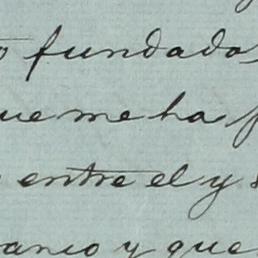 fundado
que me ha
entre el y
y que